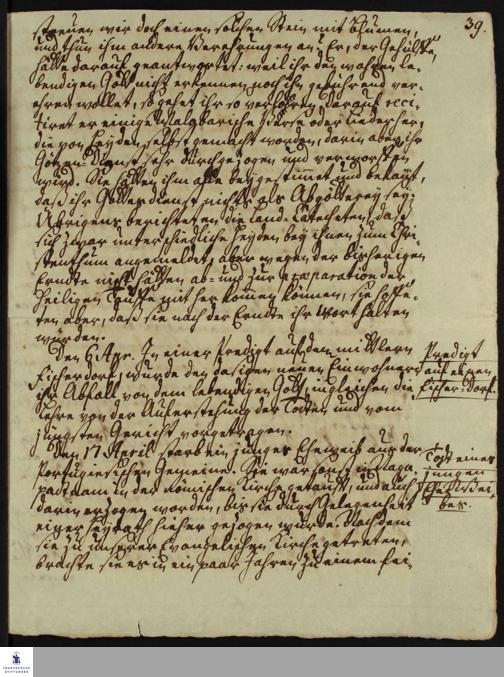 39.
streuen wir doch einen solchen Stein mit Blumen,
und thun ihm andere Verehrungen an. Er, der Gehülfe,
hätte darauf geantwortet: weil ihr den wahren le-
bendigen Gott nicht erkennen, noch ihn gebührend ver-
ehren wollet, so gehet ihr so verfahren. Darauf reci-
tiret er einige Malabarische Verse oder Lieder her,
die von Heyden selbst gemacht worden, darin aber ihr
Götzen-Dienst sehr durchgezogen und verworfen
wird. Sie hätten ihm alle beygestimmet und bekant,
daß ihr Götterdienst nichts als Abgötterey sey.
Übrigens berichteten die Land-Catecheten, daß
sich zwar unterschiedliche Heyden bey ihnen zum Chri-
stenthum angemeldet, aber wegen der bisherigen
Erndte nicht hätten ab- und zur Praeparation der
Heiligen Tauffe mit her kommen können, sie hoffe-
ten aber, daß sie nach der Erndte ihr Wort halten
würden.
Den 6 Apr. In einer Predigt auf dem mittlern
Fischerdorf, wurde den dasigen neuen Einwohnern
ihr Abfall von dem lebendigen Gott, ingleichen die
Lehre von der Auferstehung der Todten und vom
jüngsten Gericht vorgetragen.
Predigt
auf einem
Fischer-Dorf.
Den 17 April starb ein junges Eheweib aus der
Portugiesischen Gemeine. Sie war sonst in Naga-
patnam in der römischen Kirche getauft, und auch
darin erzogen worden, bis sie durch Gelegenheit
einer Heyrath hieher gezogen wurde. Nachdem
sie zu unserer Evangelischen Kirche getreten,
brachte sie es in ein paar Jahren zu einem fei-
Tod eines
jungen
Ehe-Wei-
bes.
FRANCKESCHE
STIFTUNGEN